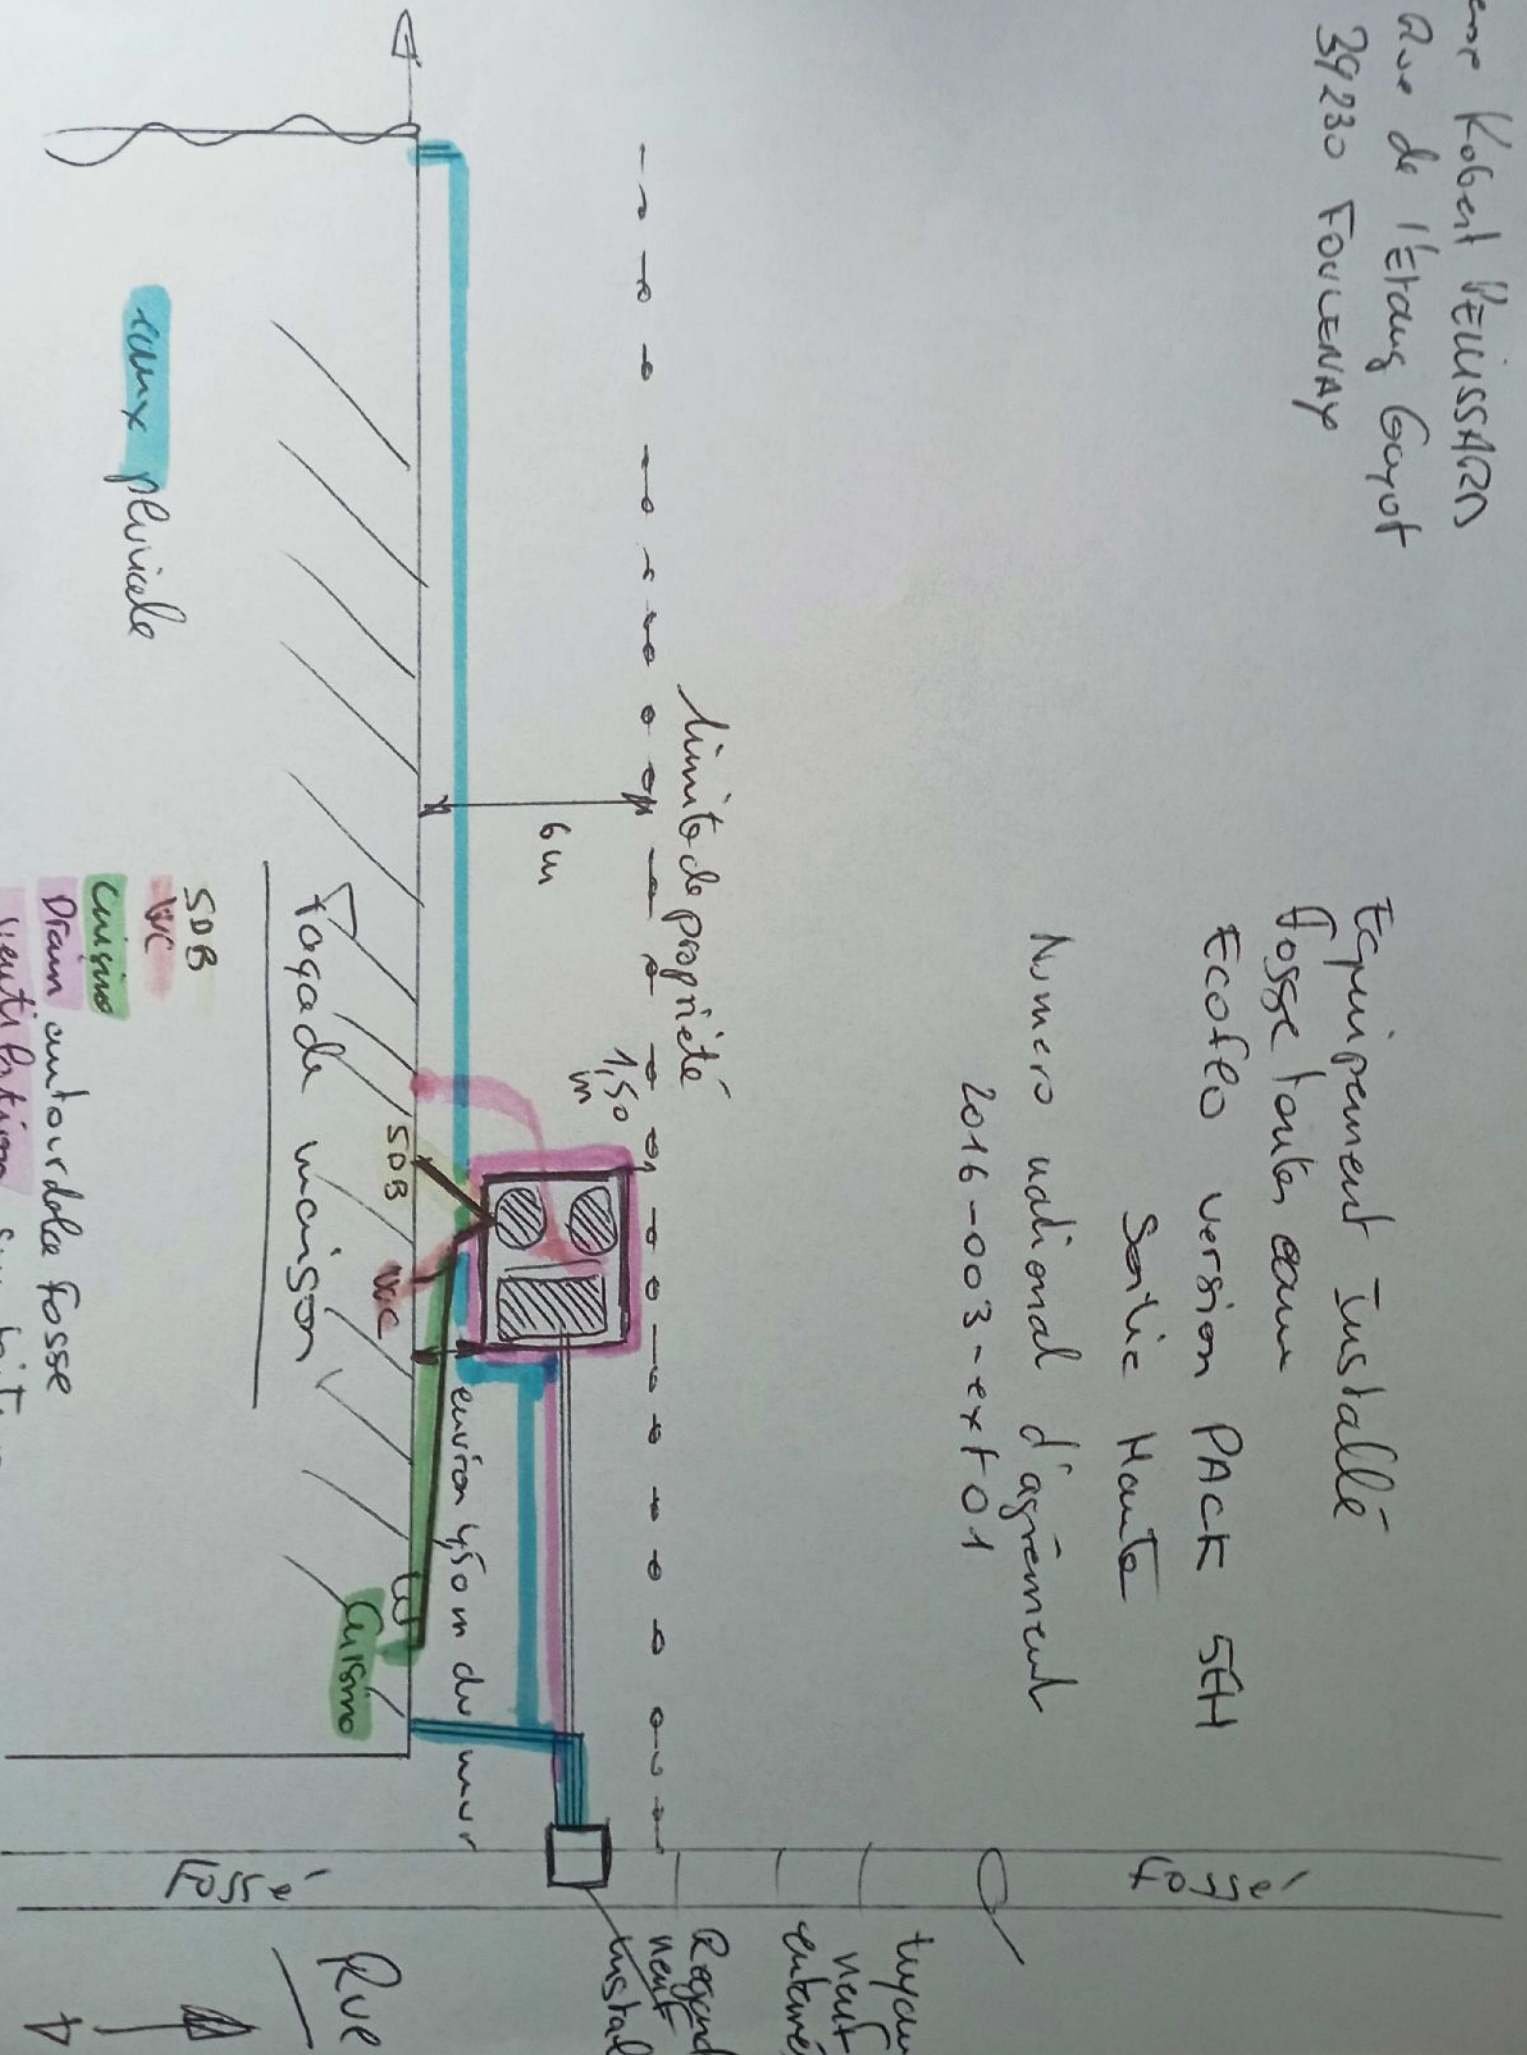 Robert PEUISSARD
Rue de l'Étang Guyot
39230 FOULENAY
Equipement Installé
fosse toutes eau
Ecoflo version PACK 5EH
Sortie Haute
Numero national d'agrément
2016-003-ext01
limite de propriété
1,50
m
6m
SDB
WC
Cuisine
environ 1,50 m du mur
façade maison
eaux pluviale
SDB
WC
Cuisine
Drain autour de la fosse
Ventilation
Fossé
fossé
tuyau
neuf
enterré
Regard
neuf
Rue